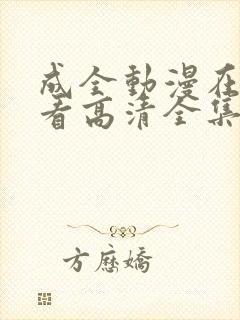 成全動漫在
看高清全集
方應嬌